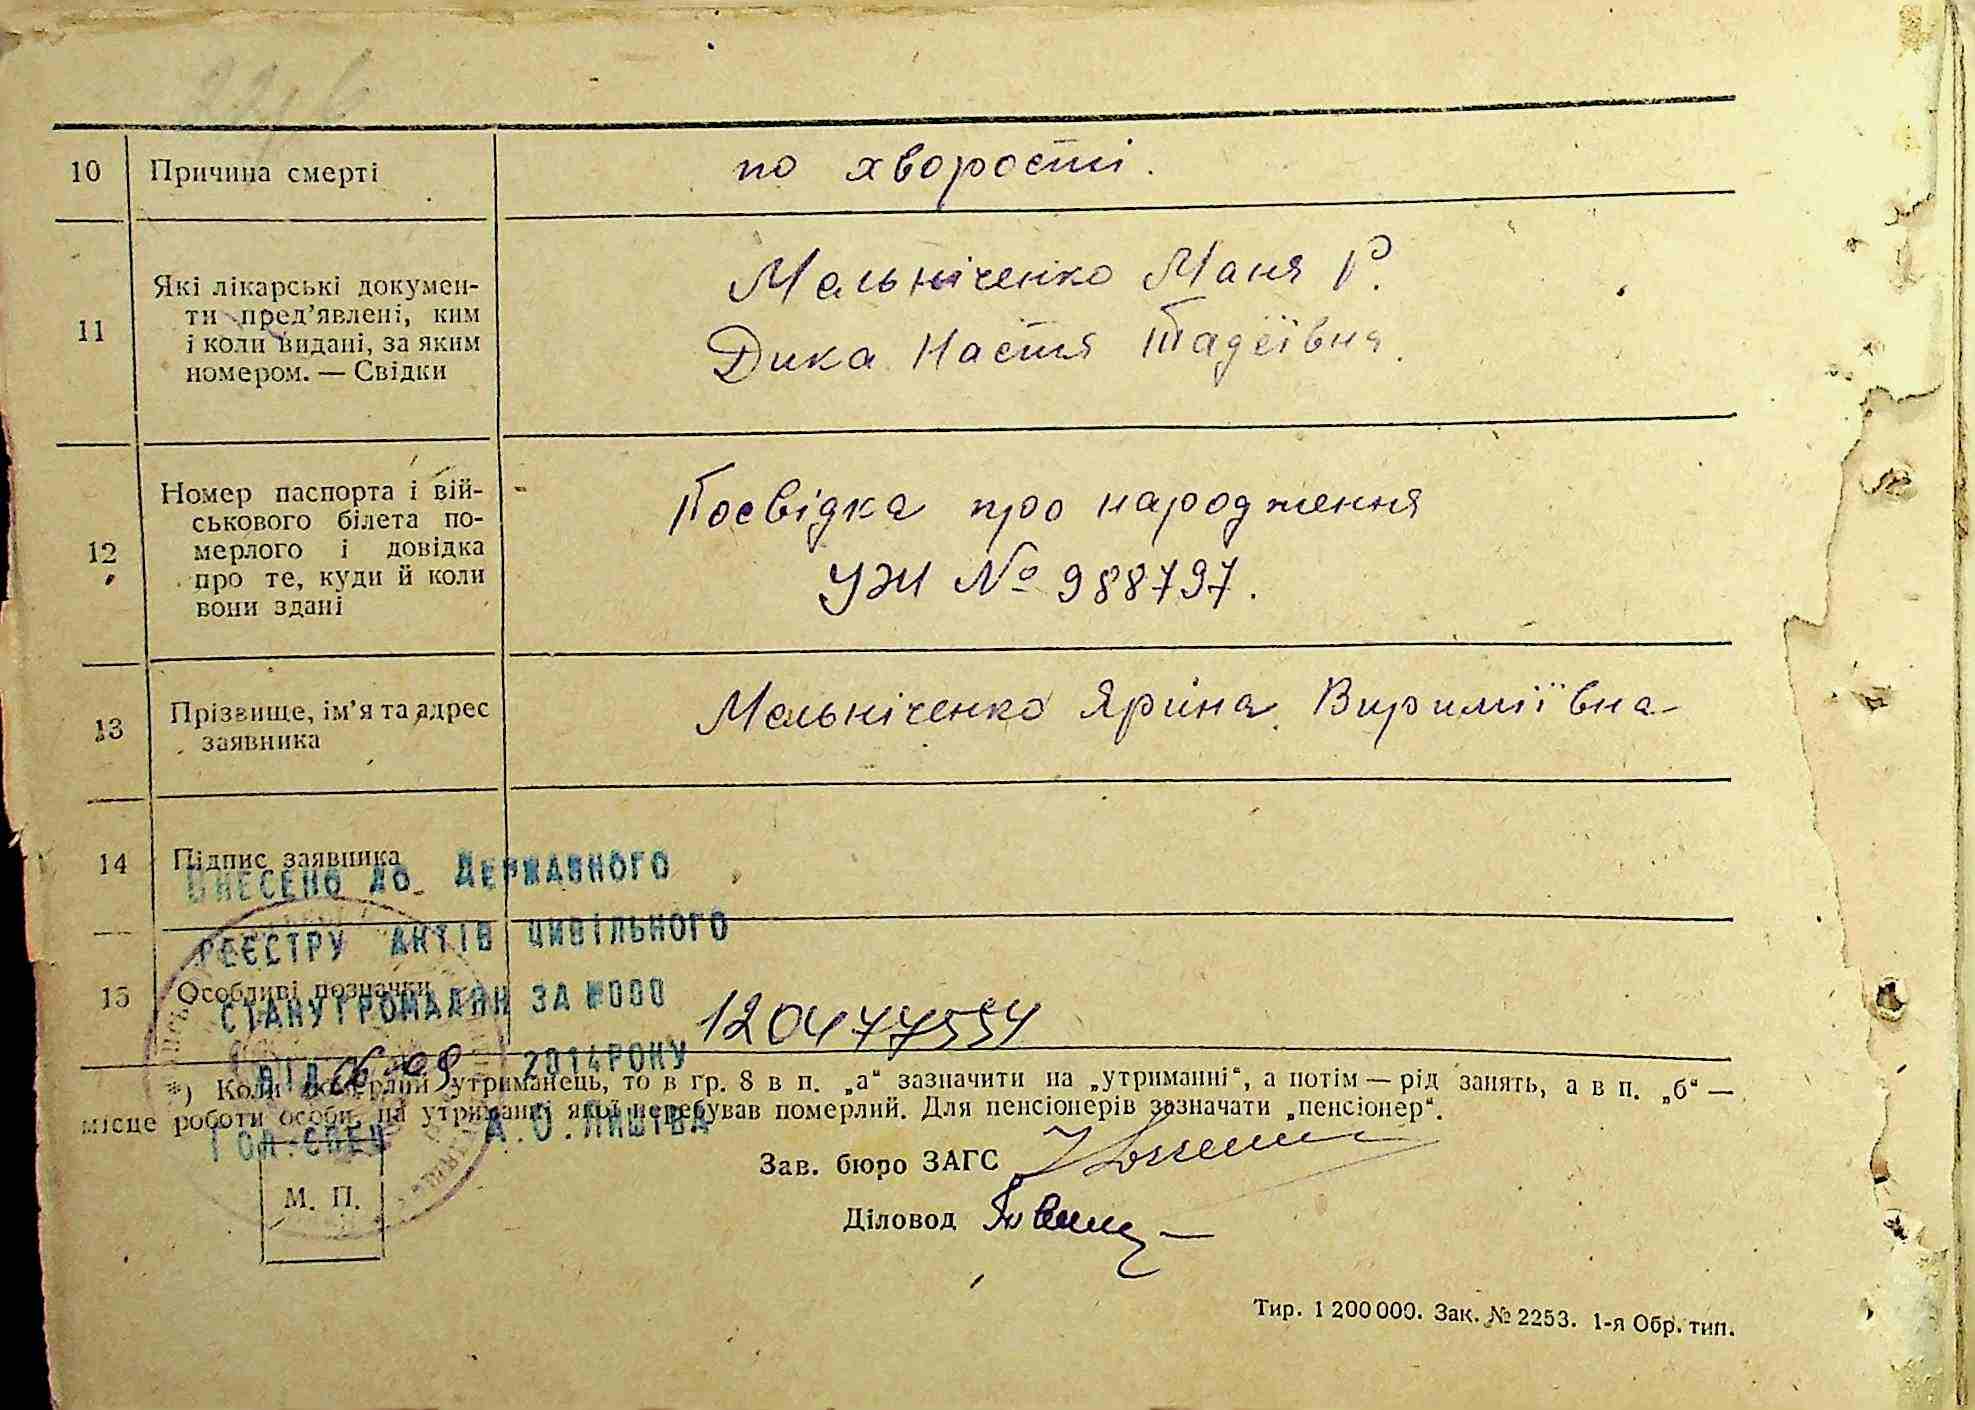 10 Причина смерті
по хворості.
11 Які лікарські докумен-
ти пред'явлені, ким
і коли видані, за яким
номером. — Свідки
Мельніченко Маня Р.
Дика Настя Тадеївна.
12 Номер паспорта і вій-
ськового білета по-
мерлого і довідка
про те, куди й коли
вони здані
Посвідка про народження
УЖ № 988797.
13 Прізвище, ім'я та адрес
заявника
Мельніченко Ярина
14 Підпис заявника
ВНЕСЕНО ДО ДЕРЖАВНОГО
РЕЄСТРУ АКТІВ ЦИВІЛЬНОГО
15 Особливі позначки
СТАНУ ГРОМАДЯН ЗА №000
1204477554
ВІД 09 2014 РОКУ
*) Коли померлий утриманець, то в гр. 8 в п. „а“ зазначити на „утриманні“, а потім — рід занять, а в п. „б“ —
місце роботи особи, на утриманні якої перебував померлий. Для пенсіонерів зазначати „пенсіонер“.
ГОЛ.СПЕЦ А.О.
Зав. бюро ЗАГС
М. П.
Діловод
Тир. 1 200 000. Зак. № 2253. 1-я Обр. тип.